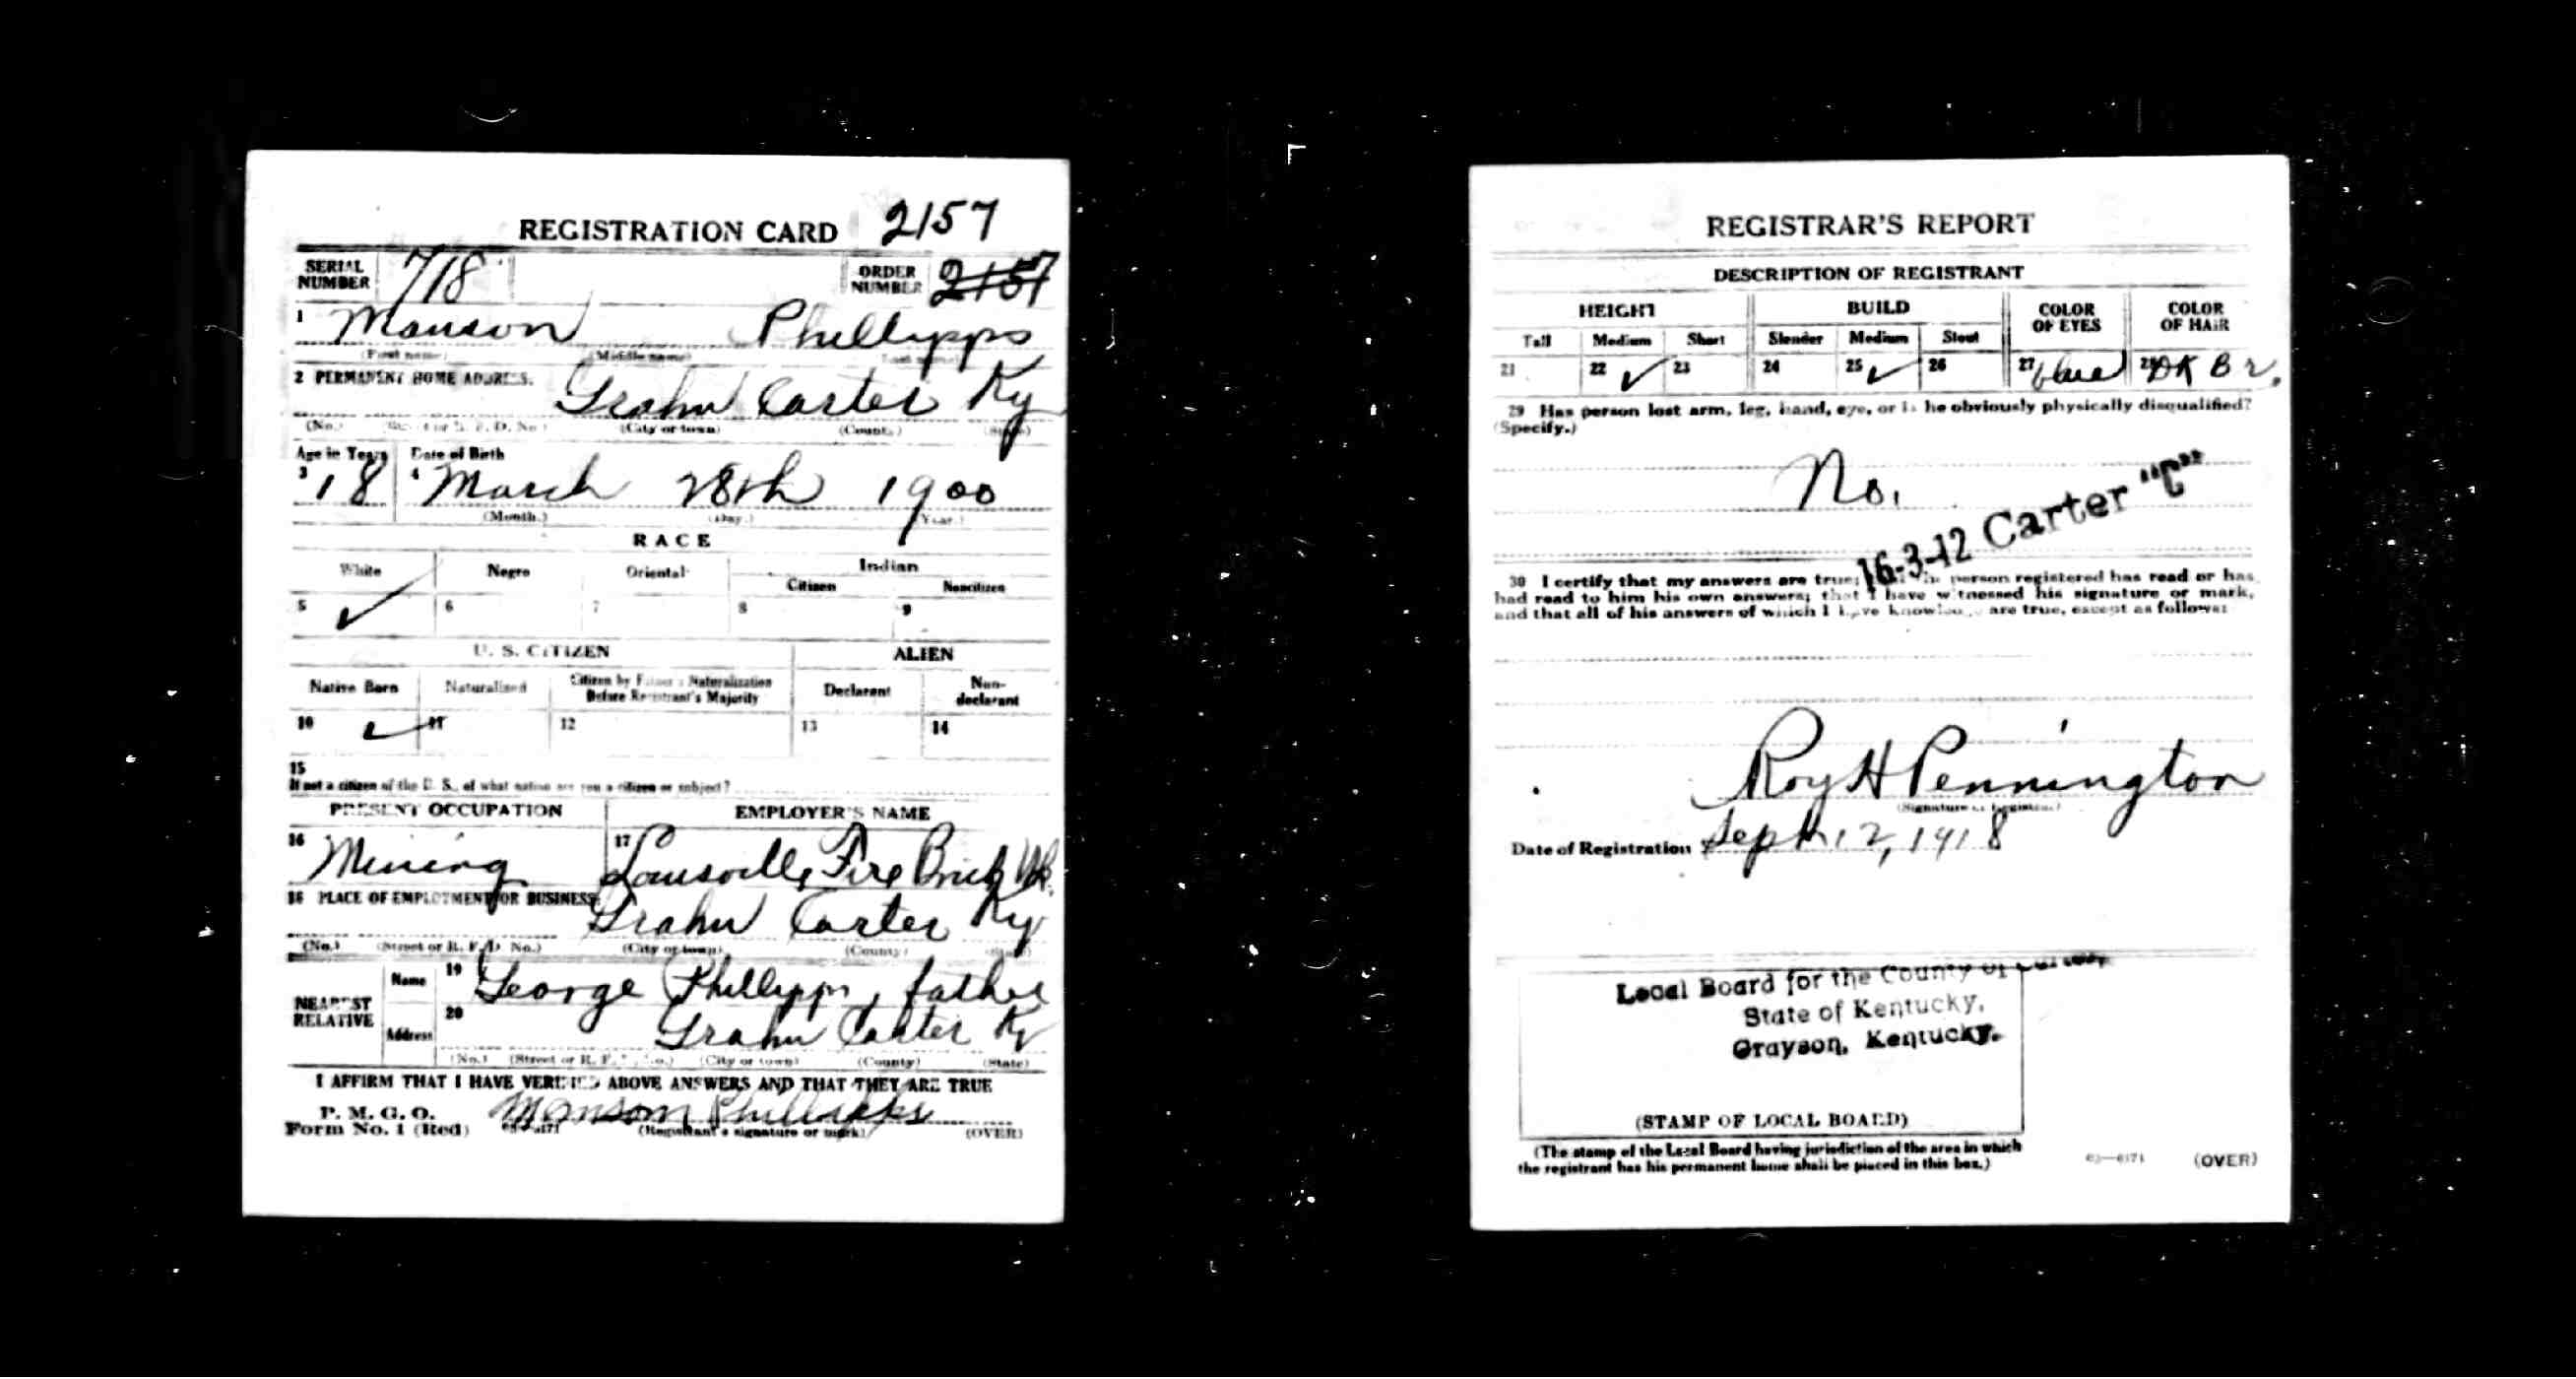 REGISTRATION CARD 2157
SERIAL NUMBER 718 ORDER NUMBER 2157
1 Manson Phellypps
(First name) (Middle name) (Last name)
2 PERMANENT HOME ADDRESS.
Grahn Carter Ky
(No.) (Street or R. F. D. No.) (City or town) (County) (State)
Age in Years Date of Birth
3 18 4 March 28th 1900
(Month.) (Day.) (Year.)
RACE
White Negro Oriental Indian
Citizen Noncitizen
5 ✓ 6 7 8 9
U. S. CITIZEN ALIEN
Native Born Naturalized Citizen by Father's Naturalization Before Registrant's Majority Declarant Non-declarant
10 ✓ 11 12 13 14
15
If not a citizen of the U. S., of what nation are you a citizen or subject?
PRESENT OCCUPATION EMPLOYER'S NAME
16 Mining 17 Louisville Fire Brick Wk.
18 PLACE OF EMPLOYMENT OR BUSINESS:
Grahn Carter Ky
(No.) (Street or R. F. D. No.) (City or town) (County) (State)
NEAREST RELATIVE
Name 19 George Phellypps, father
Address 20 Grahn Carter Ky
(No.) (Street or R. F. D. No.) (City or town) (County) (State)
I AFFIRM THAT I HAVE VERIFIED ABOVE ANSWERS AND THAT THEY ARE TRUE
P. M. G. O.
Form No. 1 (Red) Manson
(Registrant's signature or mark) (OVER)
REGISTRAR'S REPORT
DESCRIPTION OF REGISTRANT
HEIGHT BUILD COLOR OF EYES COLOR OF HAIR
Tall Medium Short Slender Medium Stout
21 22 ✓ 23 24 25 ✓ 26 27 blue 28 DK Br.
29 Has person lost arm, leg, hand, eye, or is he obviously physically disqualified?
(Specify.)
No.
16-3-12 Carter "C"
30 I certify that my answers are true; that the person registered has read or has
had read to him his own answers; that I have witnessed his signature or mark,
and that all of his answers of which I have knowledge are true, except as follows:
Roy H Pennington
(Signature of Registrar)
Date of Registration Sept 12, 1918
Local Board for the County of Carter
State of Kentucky,
Grayson, Kentucky.
(STAMP OF LOCAL BOARD)
(The stamp of the Local Board having jurisdiction of the area in which
the registrant has his permanent home shall be placed in this box.)
63—6171 (OVER)